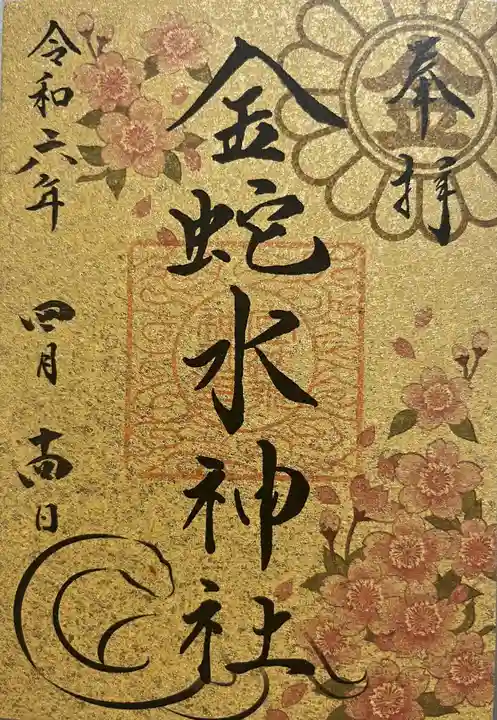 奉拝
金蛇水神社
令和六年 四月 十四日